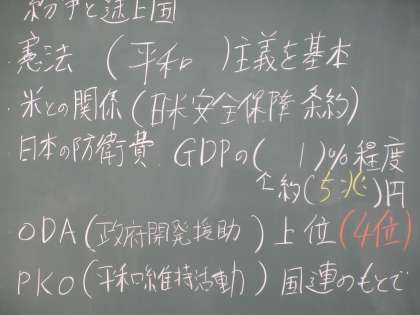 紛争と途上国
・憲法 (平和 )主義を基本
・米との関係(日米安全保障条約)
・日本の防衛費 GDPの( 1)%程度
↑約(5兆)円
ODA(政府開発援助 )上位(4位)
PKO(平和維持活動) 国連のもとで